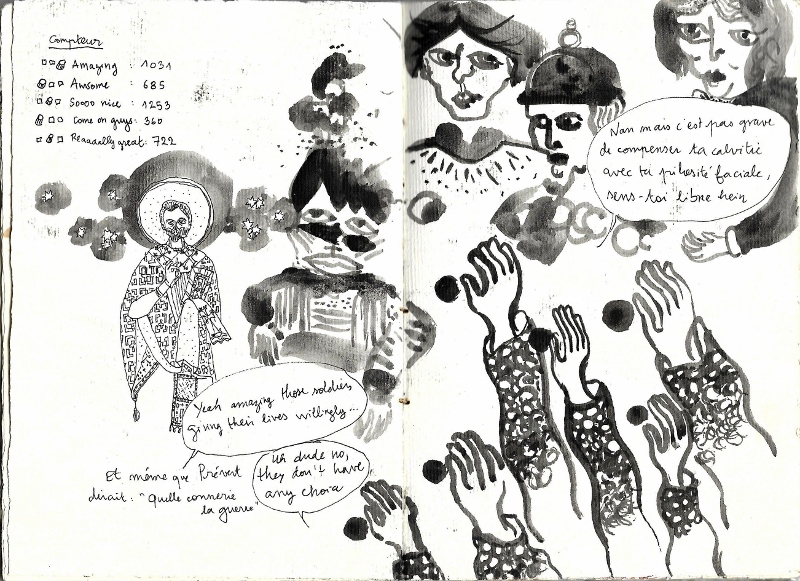 Compteur
Amazing : 1031
Awsome : 685
Soooo nice : 1253
Come on guys : 360
Reaaaally great : 722
Nan mais c'est pas grave
de compenser ta calvitie
avec ta pilosité faciale,
sens-toi libre hein
Yeah amazing those soldiers
giving their lives willingly...
uh dude no,
they don't have
any choice
Et même que Prévert
dirait : "Quelle connerie
la guerre"